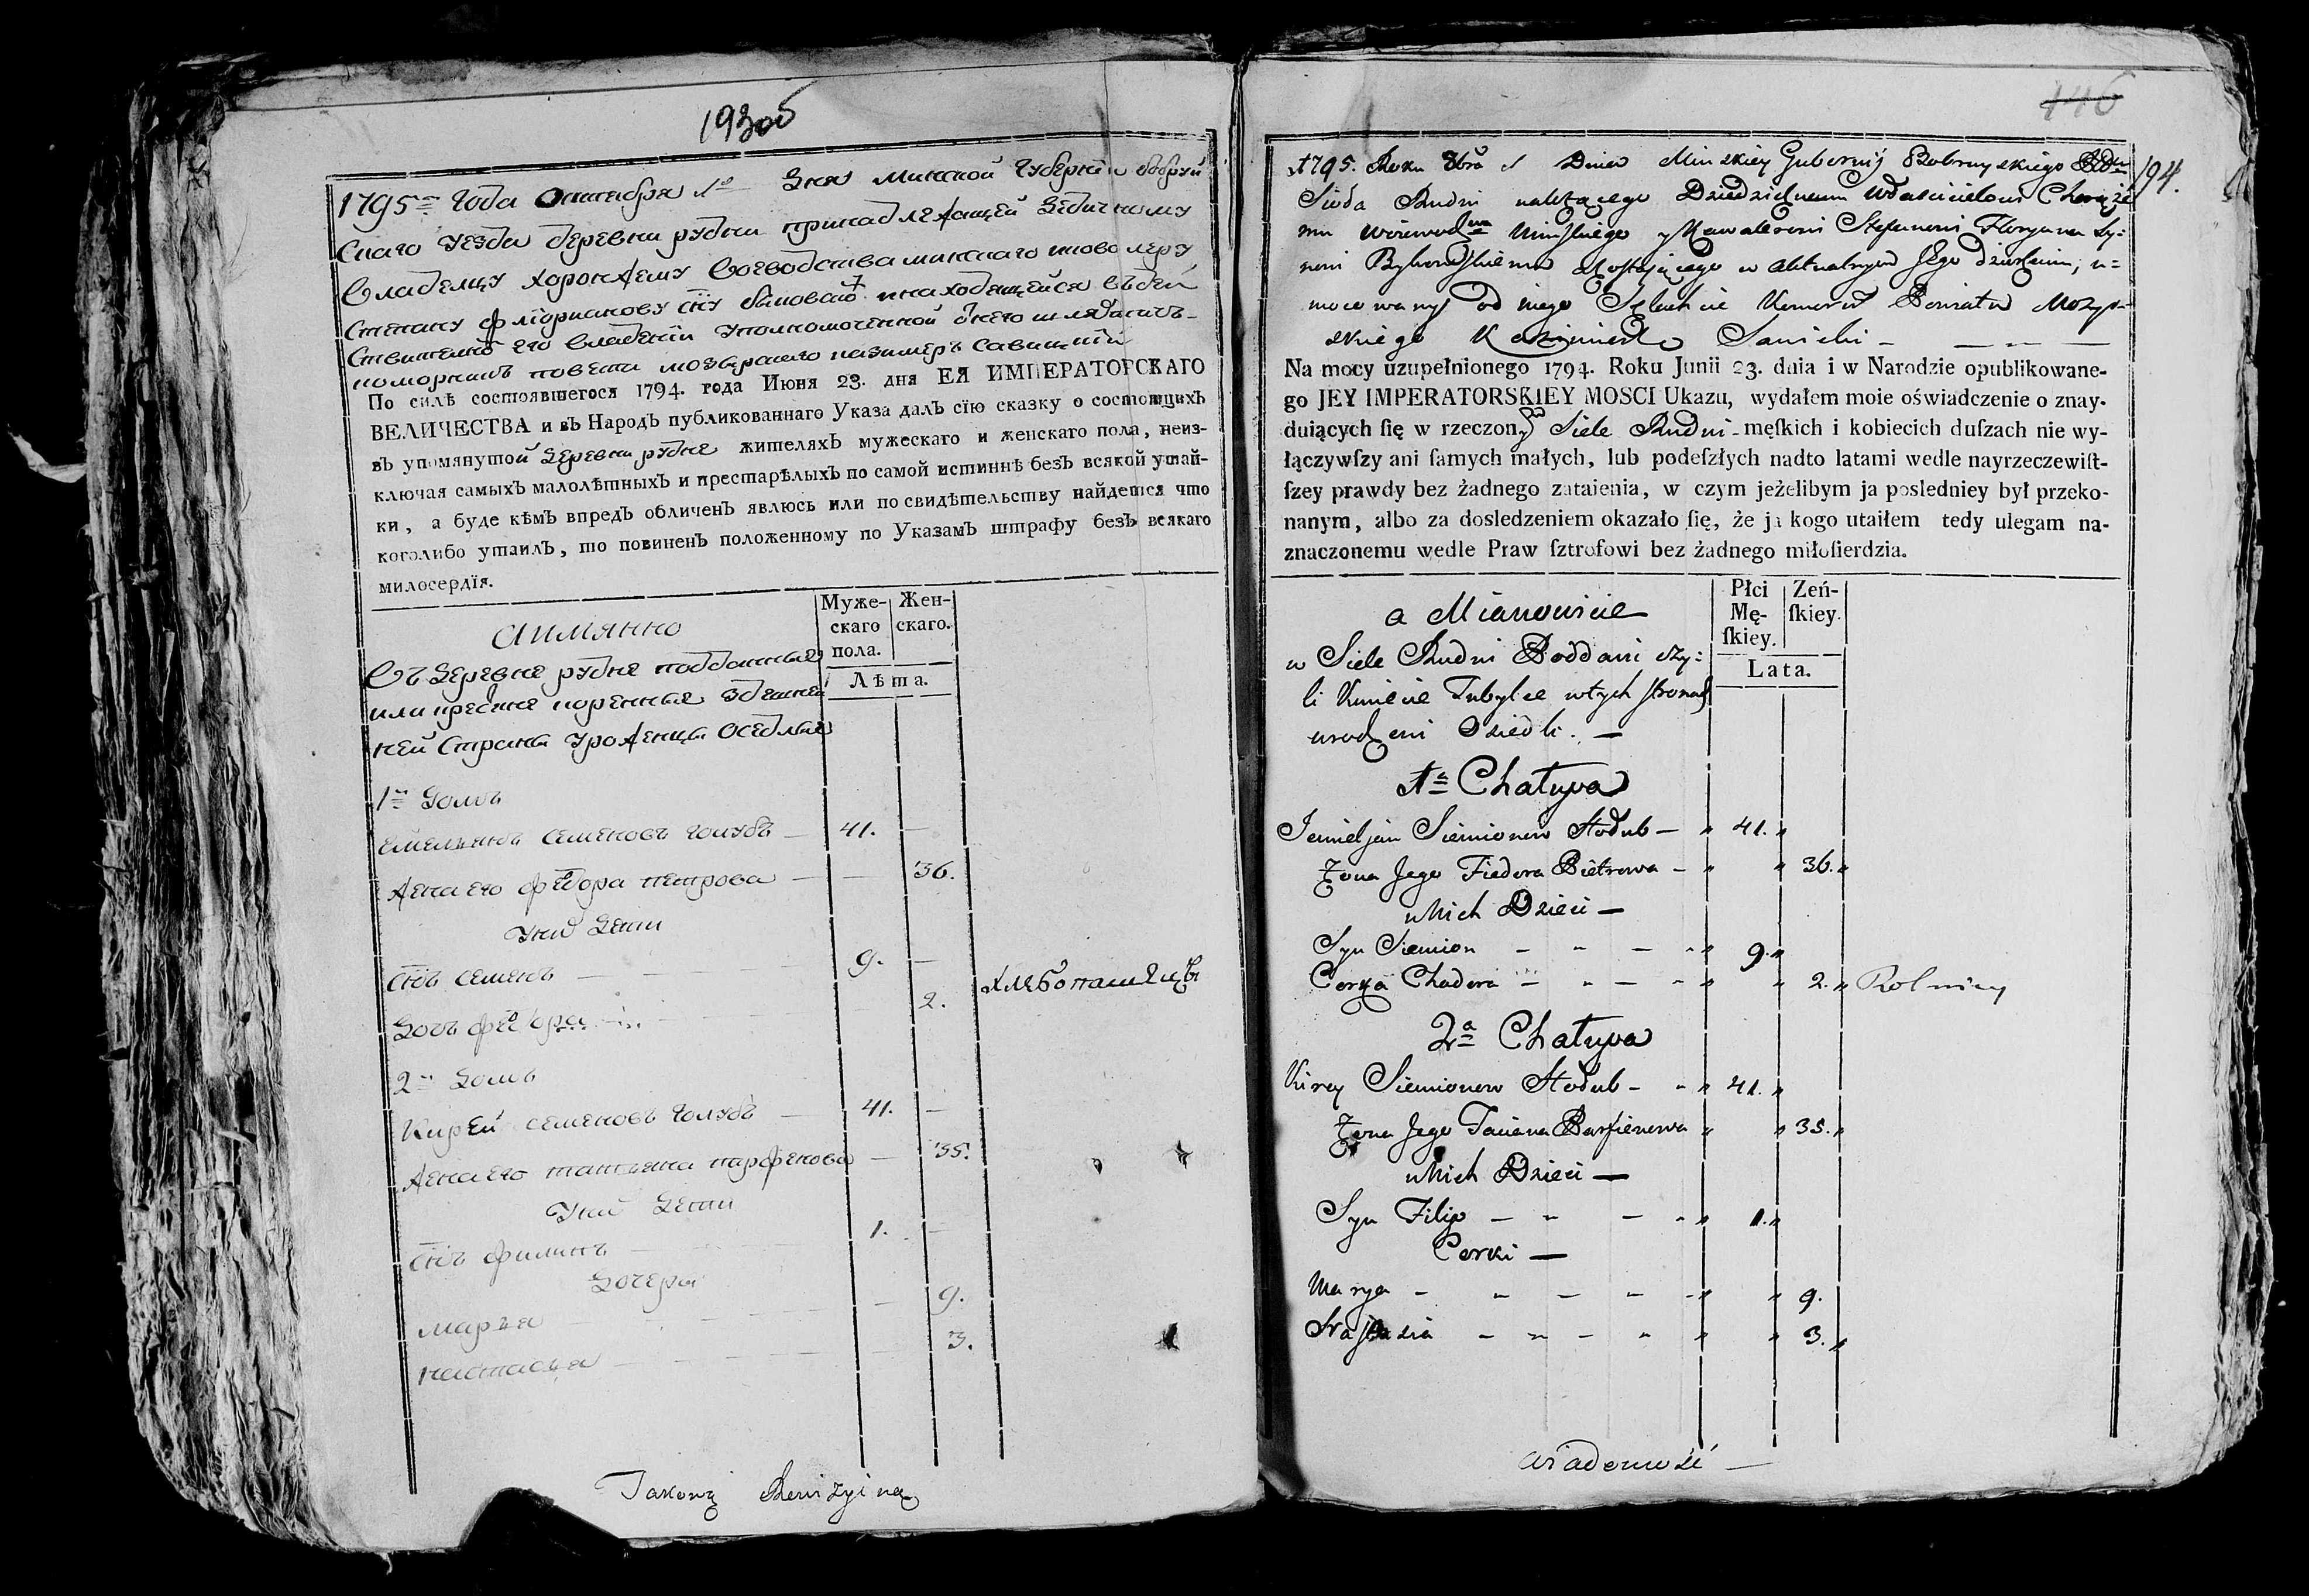 193 об
1795го Года Октября 1го Дня Минской Губернии бобруй
скаго уезда деревни рудни принадлежащей Дедичному
Владелцу хоронжему Воеводства минскаго икаволеру
Степану флориянову сну и находящейся въдей
ствително его владении уполномоченной онего шляхтичъ
коморникъ повета мозырскаго казимеръ савицкий
По силѣ состоявшегося 1794. года Июня 23. дня ЕЯ ИМПЕРАТОРСКАГО
ВЕЛИЧЕСТВА и въ Народъ публикованнаго Указа далъ сїю сказку о состоящихъ
въ упомянутой Деревни рудне жителяхъ мужескаго и женскаго пола, неиз-
ключая самыхъ малолѣтныхъ и престарѣлыхъ по самой истиннѣ безъ всякой утай-
ки, а буде кѣмъ впредъ обличенъ явлюсь или по свидѣтельству найдется что
коголибо утаилъ, то повиненъ положенному по Указамъ штрафу безъ всякаго
милосердїя.
Муже-
скаго
пола.
Жен-
скаго.
Лѣта.
аимянно
Въ Деревне рудне подданные
или коренные здешней
ней Страны уроженцы Оседлые
1й Домъ
емельянъ семеновъ голубъ — 41. —
жена его федора петрова — — 36.
Уних Дети
снъ семенъ — 9. —
дочь федора — 2. хлебопашецы
2й Домъ
Кирей семеновъ голубъ — 41. —
жена его татьяна парфенова — 35.
Уних Дети
снъ филипъ — 1. —
Дочери
марья — — 9.
настасья — — 3.
Takową Rewizyiną
146
194.
1795. Roku 8bra 1 Dnia Minskiey Gubernij Bobruyskiego
Sioła Rudni należącego Dziedzicznemu Właścicielowi Chorąże
mu Wojewodwa Minskiego y Kawalerowi Stefanowi Floryana Sy-
nowi w aktualnym Jego dzierżeniu, u-
mocowany od niego Szlachcic Komornik Powiatu Mozyr-
skiego Kazimierz Sawicki —
Na mocy uzupełnionego 1794. Roku Junii 23. dnia i w Narodzie opublikowane-
go JEY IMPERATORSKIEY MOSCI Ukazu, wydałem moie oświadczenie o znay-
duiących ſię w rzeczony Siele Rudni — męſkich i kobiecich duſzach nie wy-
łączywſzy ani ſamych małych, lub podeſzłych nadto latami wedle nayrzeczewiſt-
ſzey prawdy bez żadnego zataienia, w czym jeżelibym ja posledniey był przeko-
nanym, albo za dosledzeniem okazało ſię, że ja kogo utaiłem tedy ulegam na-
znaczonemu wedle Praw ſztrofowi bez żadnego miłoſierdzia.
Płci
Mę-
ſkiey.
Zeń-
ſkiey.
Lata.
a Mianowicie
w Siele Rudni Poddani czy-
li Kmiecie Tubylce wtych stronach
urodzeni Osiedli. —
1a Chałupa
Jemieljan Siemionow Hołub — 41.
Żona Jego Fiedora Pietrowa — 36.
uNich Dzieci —
Syn Siemion — 9.
Corka Chadora — 2. Rolnicy
2a Chałupa
Kirey Siemionow Hołub — 41.
Żona Jego Taciana Parfienowa 35.
uNich Dzieci —
Syn Filip — 1.
Corki —
Marya — 9.
Nastazia — 3.
wiadomość —